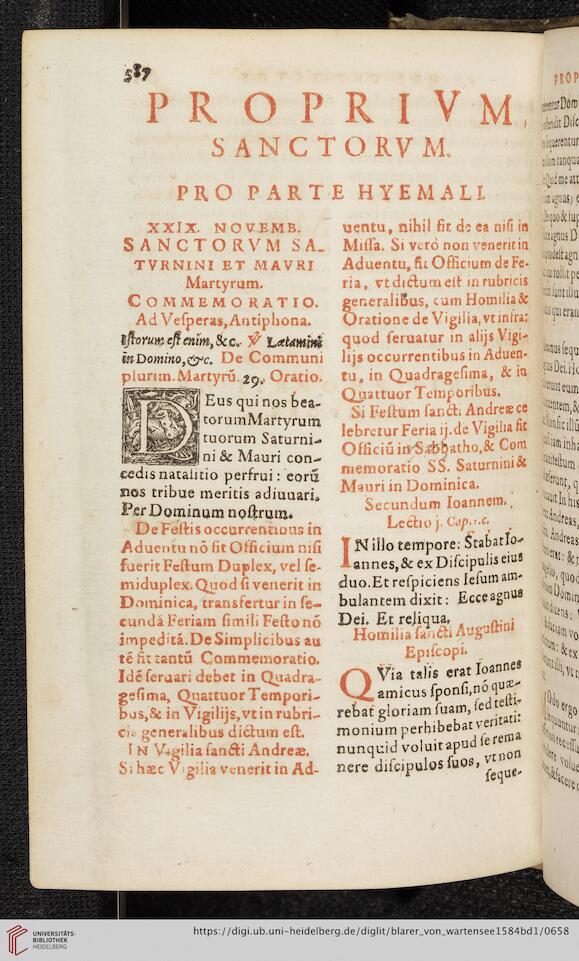 587
PROPRIVM,
SANCTORVM.
PRO PARTE HYEMALI.
XXIX. NOVEMB.
SANCTORVM SA-
TVRNINI ET MAVRI
Martyrum.
COMMEMORATIO.
Ad Vesperas, Antiphona.
Istorum est enim, &c. ℣ Lætamini
in Domino, &c. De Communi
plurim. Martyrũ. 29. Oratio.
DEus qui nos bea-
torum Martyrum
tuorum Saturni-
ni & Mauri con-
cedis natalitio perfrui: eorũ
nos tribue meritis adiuuari.
Per Dominum nostrum.
De Festis occurrentibus in
Aduentu nõ fit Officium nisi
fuerit Festum Duplex, vel se-
miduplex. Quod si venerit in
Dominica, transfertur in se-
cundã Feriam simili Festo nõ
impeditã. De Simplicibus au
tẽ fit tantũ Commemoratio.
Idẽ seruari debet in Quadra-
gesima, Quattuor Tempori-
bus, & in Vigilijs, vt in rubri-
cis generalibus dictum est.
IN Vigilia sancti Andreæ.
Si hæc Vigilia venerit in Ad-
uentu, nihil fit de ea nisi in
Missa. Si verò non venerit in
Aduentu, fit Officium de Fe-
ria, vt dictum est in rubricis
generalibus, cum Homilia &
Oratione de Vigilia, vt infra:
quod seruatur in alijs Vigi-
lijs occurrentibus in Aduen-
tu, in Quadragesima, & in
Quattuor Temporibus.
Si Festum sancti Andreæ ce
lebretur Feria ij. de Vigilia fit
Officiũ in Sabbatho, & Com
memoratio SS. Saturnini &
Mauri in Dominica.
Secundum Ioannem.
Lectio j. Cap. 1. c.
IN illo tempore: Stabat Io-
annes, & ex Discipulis eius
duo. Et respiciens Iesum am-
bulantem dixit: Ecce agnus
Dei. Et reliqua.
Homilia sancti Augustini
Episcopi.
QVia talis erat Ioannes
amicus sponsi, nó quæ-
rebat gloriam suam, sed testi-
monium perhibebat veritati:
nunquid voluit apud se rema
nere discipulos suos, vt non
seque-
PROP
UNIVERSITÄTS-
BIBLIOTHEK
HEIDELBERG
https://digi.ub.uni-heidelberg.de/diglit/blarer_von_wartensee1584bd1/0658